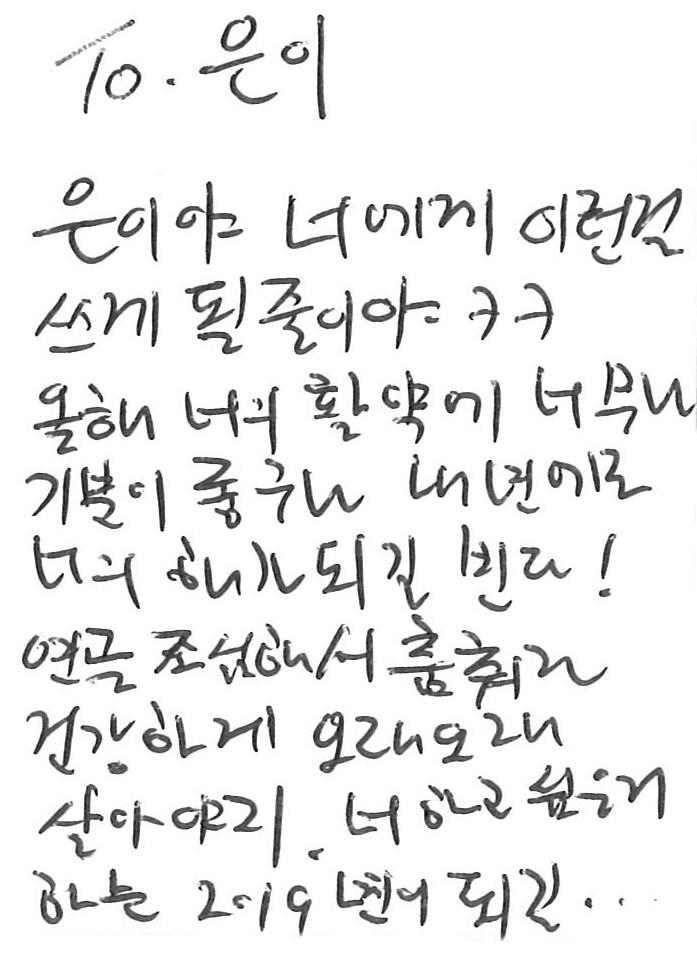 To. 은이
은이야 너에게 이런걸
쓰게 될줄이야 ㅋㅋ
올해 너의 활약에 너무나
기분이 좋구나 내년에도
너의 해가 되길 빈다!
연골 조심해서 춤춰라
건강하게 오래오래
살아야지. 너 하고싶은거
하는 2019년이 되길...